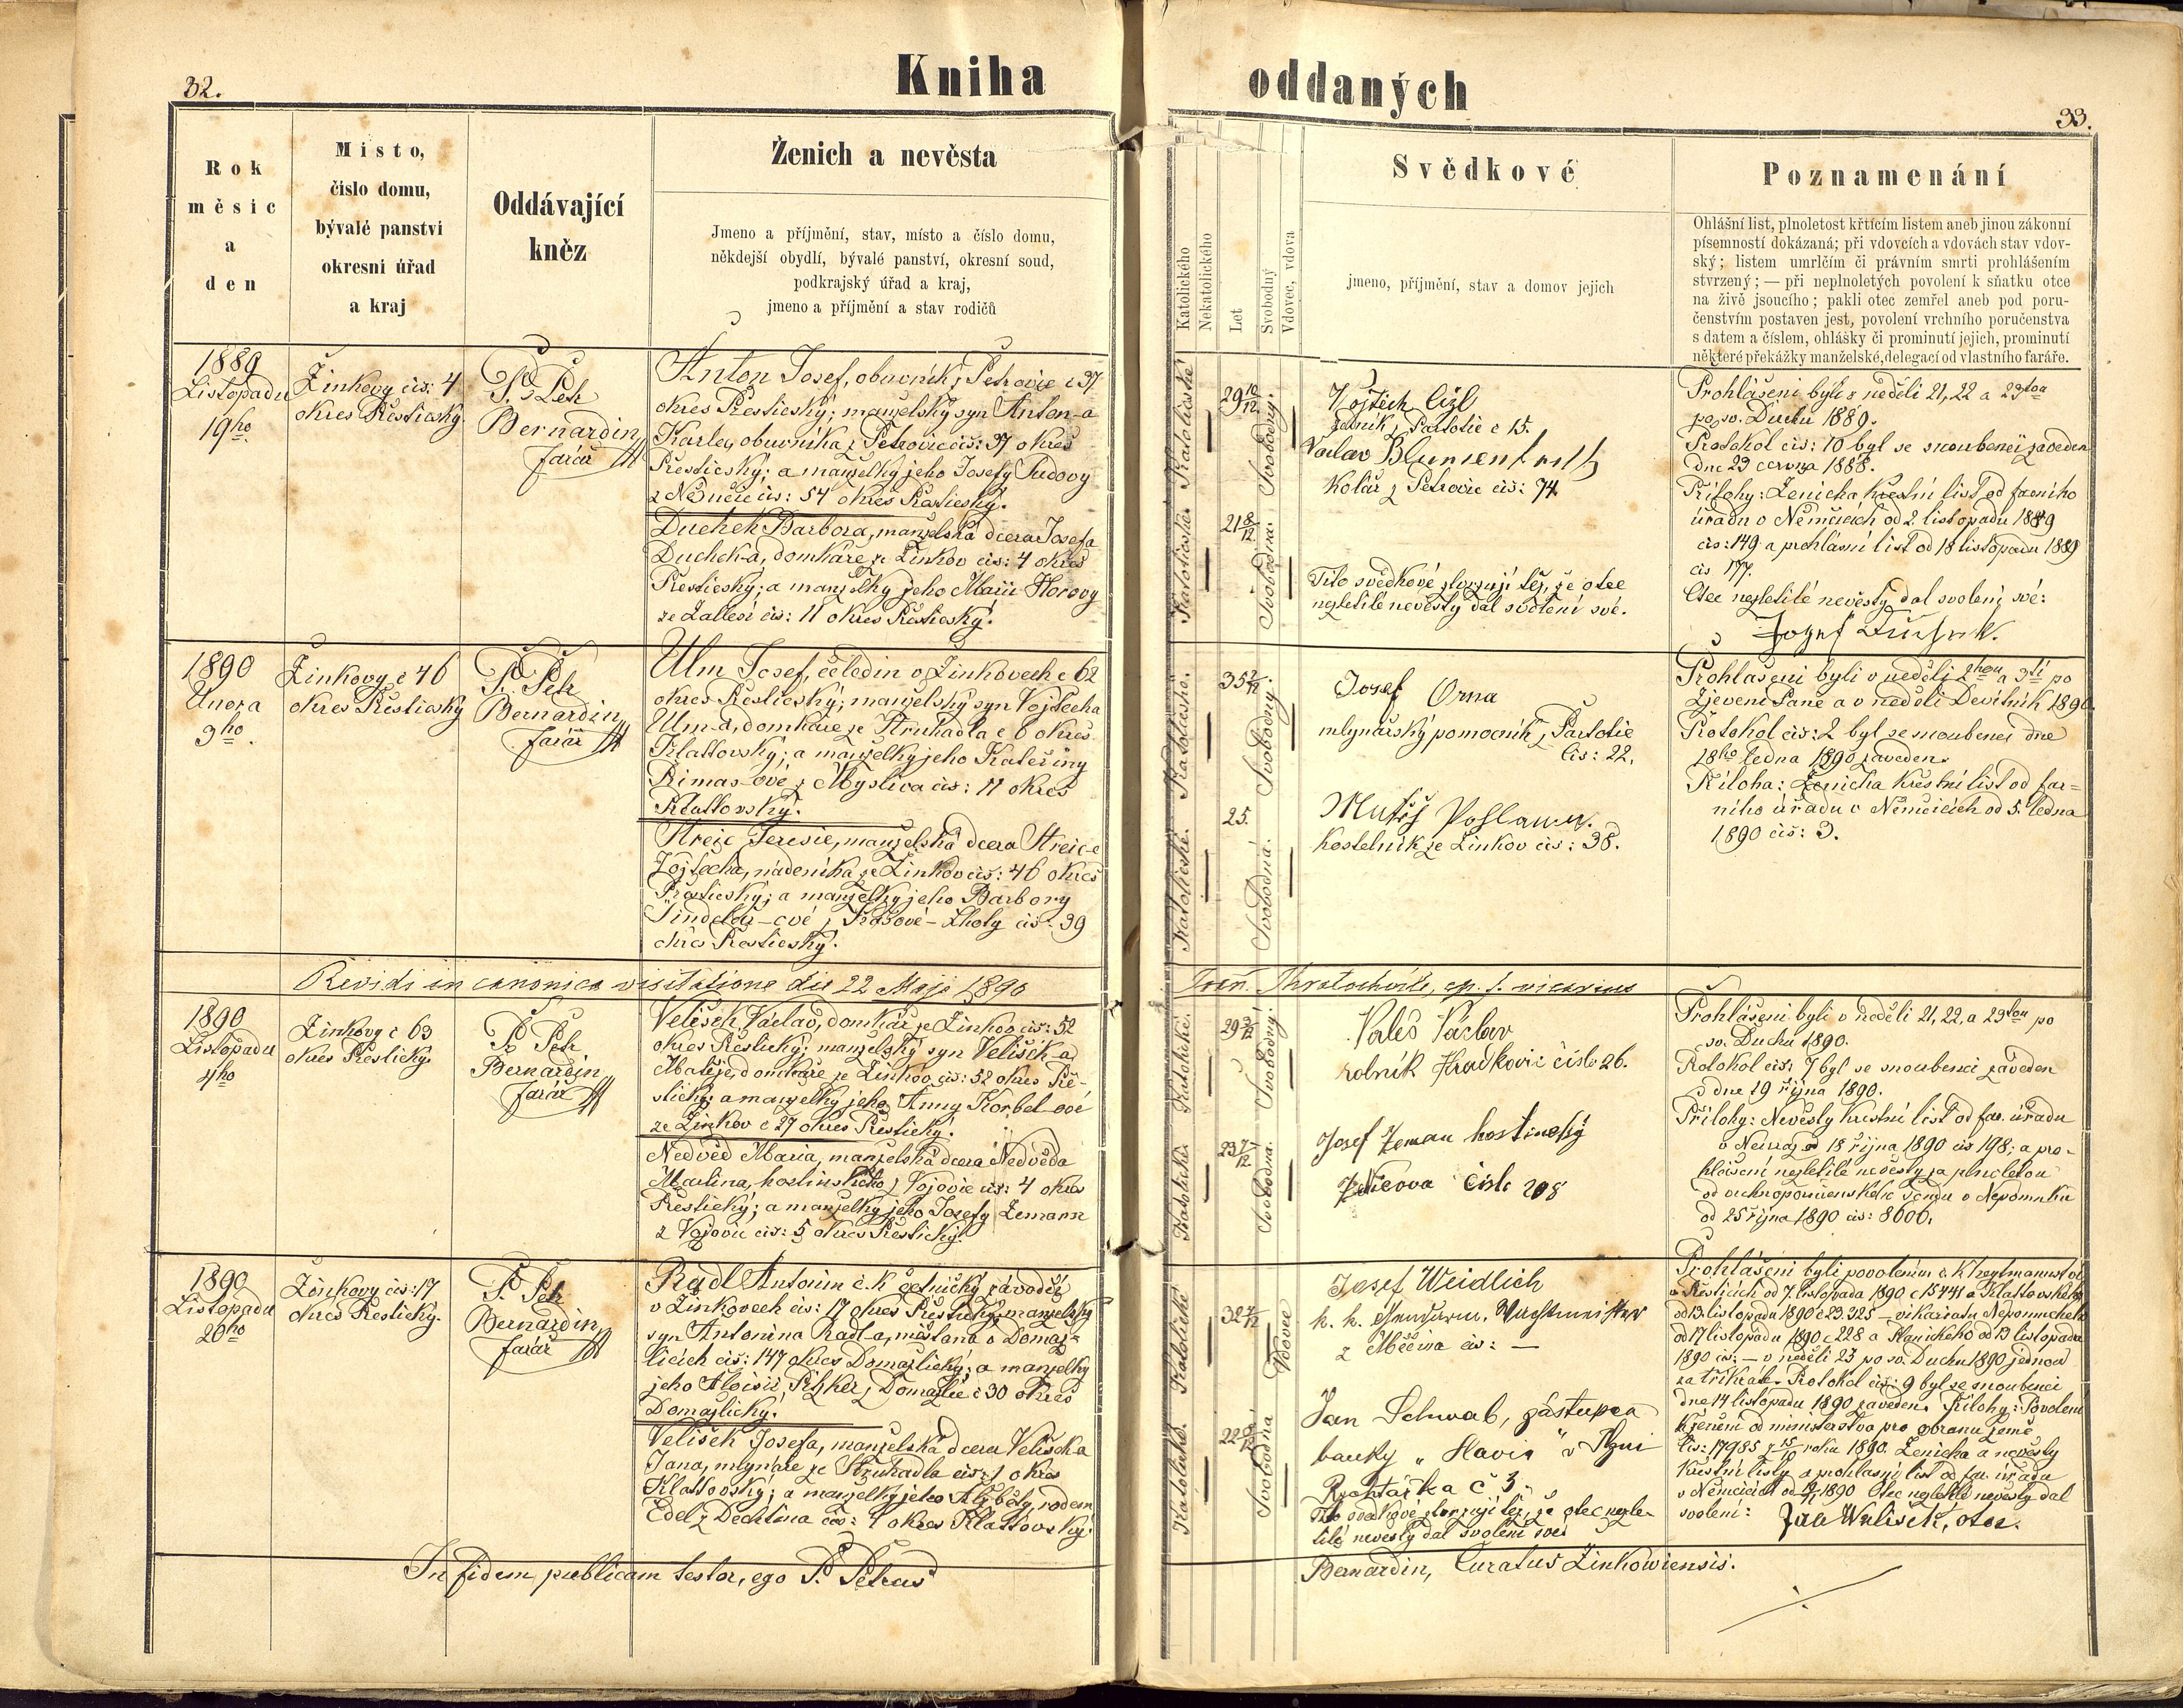 32.
Kniha
oddaných
33.
Rok
měsíc
a
den
Místo,
číslo domu,
bývalé panství
okresní úřad
a kraj
Oddávající
kněz
Ženich a nevěsta
Jmeno a příjmění, stav, místo a číslo domu,
někdejší obydlí, bývalé panství, okresní soud,
podkrajský úřad a kraj,
jmeno a příjmění a stav rodičů
Katolického
Nekatolického
Let
Svobodný
Vdovec, vdova
Svědkové
jmeno, příjmění, stav a domov jejich
Poznamenání
Ohlášní list, plnoletost křticím listem aneb jinou zákonní
písemností dokázaná; při vdovcích a vdovách stav vdov-
ský; listem umrlčím či právním smrti prohlášením
stvrzený; — při neplnoletých povolení k sňatku otce
na živě jsoucího; pakli otec zemřel aneb pod poru-
čenstvím postaven jest, povolení vrchního poručenstva
s datem a číslem, ohlášky či prominutí jejich, prominutí
některé překážky manželské, delegací od vlastního faráře.
1889
Listopadu
19ho
Žinkovy čis: 4
okres Přestický
P. Petr
Bernardin
farář
Anton Josef, obuvník z Petrovic č 37
okres Přestický; manželský syn Anton-a
Karla, obuvníka z Petrovic čis: 37 okres
Přestický; a manželky jeho Josefy Pudovy
z Němčic čis: 54 okres Přestický.
Duchek Barbora, manželská dcera Josefa
Duchek-a, domkáře ze Žinkov čis: 4 okres
Přestický; a manželky jeho Marie Horovy
ze Zálesí čis: 11 okres Přestický.
Katolické
Svobodný.
29 10/12
Katolické
Svobodná.
21 8/12
Vojtěch Cízl
z Partotic č 15.
Václav Blumentritt
Kolář z Petrovic čis: 74
Tito svědkové stvrzují též, že otec
nezletilé nevěsty dal svolení své.
Prohlášeni byli v neděli 21, 22 a 23tou
po sv. Duchu 1889.
Protokol čis: 10 byl se snoubenci zaveden
dne 23 1888.
Přílohy: Ženicha křestní list od farního
úřadu v Němčicích od 2. listopadu 1889
čis: 149 a prohlašní list od 18 listopadu 1889
čis 177.
Otec nezletilé nevěsty dal svolení své:
Jozef Duchek.
1890
Února
9ho
Žinkovy č 46
okres Přestický
P. Petr
Bernardin
farář
Ulm Josef, čeledín v Žinkovech č 62
okres Přestický; manželský syn Vojtěcha
Ulm-a, domkáře ze Struhadla č 6 okres
Klattovský; a manželky jeho Kateřiny
Rimas-ové z Myslíva čis: 11 okres
Klattovský.
Streic Teresie, manželská dcera Streic-e
Vojtěcha, nádeníka ze Žinkov čis: 46 okres
Přestický; a manželky jeho Barbory
Šindelář-ové z Lhoty čis: 39
okres Přestický.
Katolické.
Svobodný.
35 2/12
Katolické.
Svobodná.
25.
Josef Orna
mlynářský pomocník z Partotic
čis: 22.
kostelník ze Žinkov čis: 38.
Prohlášeni byli v neděli 2hou a 3tí po
Zjevení Páně a v neděli Devítník 1890.
Protokol čis: 2 byl se snoubenci dne
18ho ledna 1890 zaveden.
Příloha: Ženicha křestní list od far-
ního úřadu v Němčicích od 5. ledna
1890 čis: 3.
Revidi in canonica visitatione die 22 Maji 1890
1890
Listopadu
4ho
Žinkovy č 63
okres Přestický
P. Petr
Bernardin
farář
Velíšek Václav, domkář ze Žinkov čis: 52
okres Přestický; manželský syn Velíšek-a
Matěje, domkáře ze Žinkov čis: 52 okres Pře-
stický; a manželky jeho Anny Korbel-ové
ze Žinkov č 27 okres Přestický.
Nedvěd Maria, manželská dcera Nedvěda
Martina, hostinského z Vojovic čis: 4 okres
Přestický; a manželky jeho Josefy Zemann
z Vojovic čis: 5 okres Přestický.
Katolické.
Svobodný.
Katolické
Svobodná.
23 7/12
Valeš Václav
rolník Hradkovic číslo 26.
Josef Zeman hostinský
číslo 208
Prohlášeni byli v neděli 21, 22, a 23tou po
sv. Duchu 1890.
Protokol čis: 7 byl se snoubenci zaveden
dne 19 října 1890.
Přílohy: Nevěsty křestní list od far. úřadu
18 října 1890 čis 198; a pro-
hlášení nezletilé nevěsty za plnoletou
od vrchnoporučenského v Nepomuku
od 25 října 1890 čis: 8606.
1890
Listopadu
20ho
Žinkovy čis: 17
okres Přestický.
P. Petr
Bernardin
farář
Radl Antonín c. k. četnický závodčí
v Žinkovech čis: 17 okres Přestický; manželský
syn Antonína Radl-a, měšťana v Domaž-
licích čis: 147 okres Domažlický; a manželky
jeho Aloisie, z Domažlic č 30 okres
Domažlický.
Velíšek Josefa, manželská dcera Velíšek-a
Jana, mlynáře ze Struhadla čis: 1 okres
Klattovský; a manželky jeho Alžběty, rodem
Edel z Dechtína čis: 1 okres Klattovský.
Katolické
Vdovec
32 7/12
Katolické.
Svobodná
Josef Weidlich
k. k. Gendarm. Wachtmeister
z Měčína čis: —
Jan Schwab, zástupce
banky „Slavia" v Plzni
č 3.
Tito svědkové stvrzují též, že otec nezle-
tilé nevěsty dal svolení své.
Prohlášeni byli povolením c. k. hejtmanství
v Přesticích od 7. listopadu 1890 č 15441 a Klattovského
od 13. listopadu 1890 č 23.225 – vikariatu Nepomuckého
od 17 listopadu 1890 č 228 a Planického od 13 listopadu
1890 čis: — v neděli 23 po sv. Duchu 1890 jednou
za třikrát. Protokol čis: 9 byl se snoubenci
dne 14 listopadu 1890 zaveden. Přílohy: Povolení
k ženění od ministerstva pro obranu země
čis: 17985 roku 1890. Ženicha a nevěsty
křestní listy a prohlašní list od far. úřadu
v Němčicích 1890 Otec nezletilé nevěsty dal
svolení: Jan Welíšek, otec.
In fidem publicam testor, ego P. Petrus
Bernardin, Curatus Žinkowiensis.